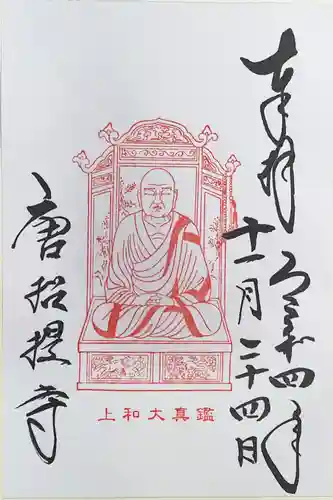 奉拝
令和四年
十一月二十四日
鑑真大和上
唐招提寺